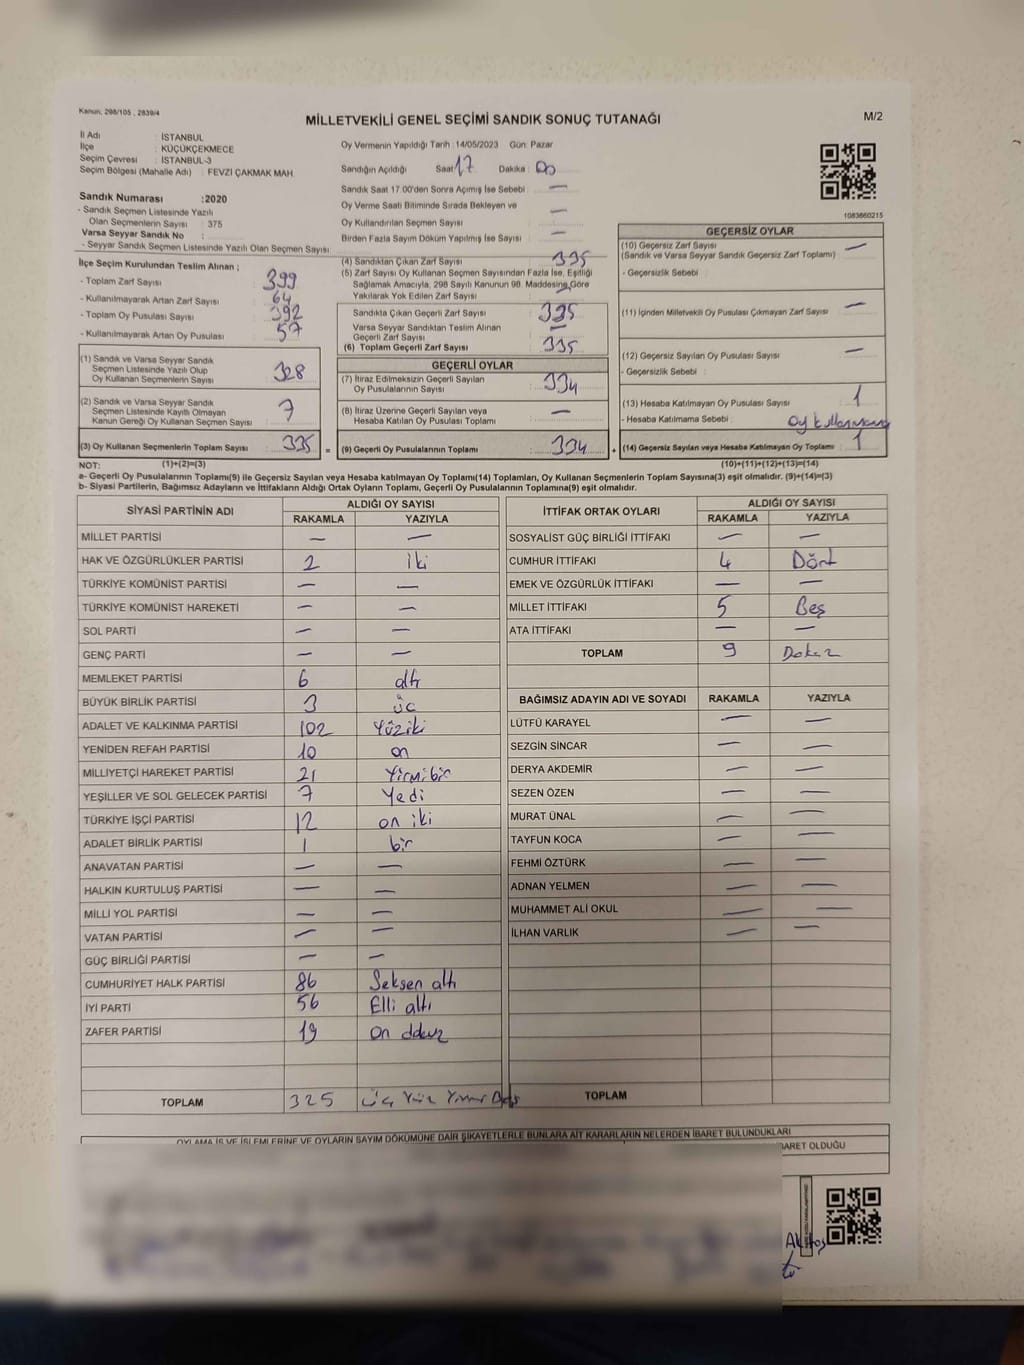 Kanun; 298/105 , 2839/4
MİLLETVEKİLİ GENEL SEÇİMİ SANDIK SONUÇ TUTANAĞI
M/2
İl Adı : İSTANBUL
İlçe : KÜÇÜKÇEKMECE
Seçim Çevresi : İSTANBUL-3
Seçim Bölgesi (Mahalle Adı) : FEVZİ ÇAKMAK MAH.
Sandık Numarası : 2020
- Sandık Seçmen Listesinde Yazılı
Olan Seçmenlerin Sayısı : 375
Varsa Seyyar Sandık No :
- Seyyar Sandık Seçmen Listesinde Yazılı Olan Seçmen Sayısı:
Oy Vermenin Yapıldığı Tarih : 14/05/2023 Gün: Pazar
Sandığın Açıldığı Saat: 17 Dakika : 00
Sandık Saat 17.00'den Sonra Açımış İse Sebebi : —
Oy Verme Saati Bitiminde Sırada Bekleyen ve
Oy Kullandırılan Seçmen Sayısı : —
Birden Fazla Sayım Döküm Yapılmış İse Sayısı : —
1083660215
İlçe Seçim Kurulundan Teslim Alınan ;
- Toplam Zarf Sayısı : 399
- Kullanılmayarak Artan Zarf Sayısı : 64
- Toplam Oy Pusulası Sayısı : 392
- Kullanılmayarak Artan Oy Pusulası : 57
(1) Sandık ve Varsa Seyyar Sandık
Seçmen Listesinde Yazılı Olup
Oy Kullanan Seçmenlerin Sayısı : 328
(2) Sandık ve Varsa Seyyar Sandık
Seçmen Listesinde Kayıtlı Olmayan
Kanun Gereği Oy Kullanan Seçmen Sayısı : 7
(3) Oy Kullanan Seçmenlerin Toplam Sayısı : 335
(4) Sandıktan Çıkan Zarf Sayısı : 335
(5) Zarf Sayısı Oy Kullanan Seçmen Sayısından Fazla İse, Eşitliği
Sağlamak Amacıyla, 298 Sayılı Kanunun 98. Maddesine Göre
Yakılarak Yok Edilen Zarf Sayısı : —
Sandıkta Çıkan Geçerli Zarf Sayısı : 335
Varsa Seyyar Sandıktan Teslim Alınan
Geçerli Zarf Sayısı : —
(6) Toplam Geçerli Zarf Sayısı : 335
GEÇERLİ OYLAR
(7) İtiraz Edilmeksizin Geçerli Sayılan
Oy Pusulalarının Sayısı : 334
(8) İtiraz Üzerine Geçerli Sayılan veya
Hesaba Katılan Oy Pusulaları Toplamı : —
= (9) Geçerli Oy Pusulalarının Toplamı : 334
GEÇERSİZ OYLAR
(10) Geçersiz Zarf Sayısı : —
(Sandık ve Varsa Seyyar Sandık Geçersiz Zarf Toplamı)
- Geçersizlik Sebebi :
(11) İçinden Milletvekili Oy Pusulası Çıkmayan Zarf Sayısı : —
(12) Geçersiz Sayılan Oy Pusulası Sayısı : —
- Geçersizlik Sebebi :
(13) Hesaba Katılmayan Oy Pusulası Sayısı : 1
- Hesaba Katılmama Sebebi : Oy
+ (14) Geçersiz Sayılan veya Hesaba Katılmayan Oy Toplamı : 1
NOT: (1)+(2)=(3) (10)+(11)+(12)+(13)=(14)
a- Geçerli Oy Pusulalarının Toplamı(9) ile Geçersiz Sayılan veya Hesaba katılmayan Oy Toplamı(14) Toplamları, Oy Kullanan Seçmenlerin Toplam Sayısına(3) eşit olmalıdır. (9)+(14)=(3)
b- Siyasi Partilerin, Bağımsız Adayların ve İttifakların Aldığı Ortak Oyların Toplamı, Geçerli Oy Pusulalarının Toplamına(9) eşit olmalıdır.
SİYASİ PARTİNİN ADI ALDIĞI OY SAYISI
RAKAMLA YAZIYLA
MİLLET PARTİSİ — —
HAK VE ÖZGÜRLÜKLER PARTİSİ 2 iki
TÜRKİYE KOMÜNİST PARTİSİ — —
TÜRKİYE KOMÜNİST HAREKETİ — —
SOL PARTİ — —
GENÇ PARTİ — —
MEMLEKET PARTİSİ 6 altı
BÜYÜK BİRLİK PARTİSİ 3 üç
ADALET VE KALKINMA PARTİSİ 102 Yüziki
YENİDEN REFAH PARTİSİ 10 on
MİLLİYETÇİ HAREKET PARTİSİ 21 Yirmibir
YEŞİLLER VE SOL GELECEK PARTİSİ 7 Yedi
TÜRKİYE İŞÇİ PARTİSİ 12 on iki
ADALET BİRLİK PARTİSİ 1 bir
ANAVATAN PARTİSİ — —
HALKIN KURTULUŞ PARTİSİ — —
MİLLİ YOL PARTİSİ — —
VATAN PARTİSİ — —
GÜÇ BİRLİĞİ PARTİSİ — —
CUMHURİYET HALK PARTİSİ 86 Seksen altı
İYİ PARTİ 56 Elli altı
ZAFER PARTİSİ 19 on
TOPLAM 325 Üç Yüz
İTTİFAK ORTAK OYLARI ALDIĞI OY SAYISI
RAKAMLA YAZIYLA
SOSYALİST GÜÇ BİRLİĞİ İTTİFAKI — —
CUMHUR İTTİFAKI 4 Dört
EMEK VE ÖZGÜRLÜK İTTİFAKI — —
MİLLET İTTİFAKI 5 Beş
ATA İTTİFAKI — —
TOPLAM 9 Dokuz
BAĞIMSIZ ADAYIN ADI VE SOYADI RAKAMLA YAZIYLA
LÜTFÜ KARAYEL — —
SEZGİN SİNCAR — —
DERYA AKDEMİR — —
SEZEN ÖZEN — —
MURAT ÜNAL — —
TAYFUN KOCA — —
FEHMİ ÖZTÜRK — —
ADNAN YELMEN — —
MUHAMMET ALİ OKUL — —
İLHAN VARLIK — —
TOPLAM
OYLAMA İŞ VE İŞLEMLERİNE VE OYLARIN SAYIM DÖKÜMÜNE DAİR ŞİKAYETLERLE BUNLARA AİT KARARLARIN NELERDEN İBARET BULUNDUKLARI
BARET OLDUĞU